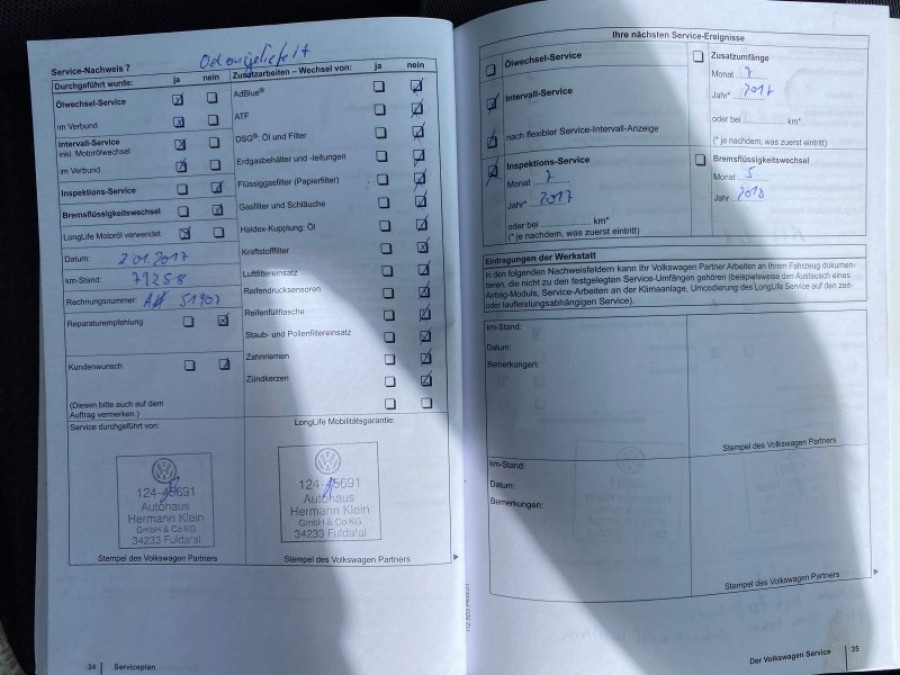 Service-Nachweis 7
Durchgeführt wurde: ja nein
Ölwechsel-Service
im Verbund
Intervall-Service
inkl. Motorölwechsel
im Verbund
Inspektions-Service
Bremsflüssigkeitswechsel
LongLife Motoröl verwendet
Datum: 2 01.2017
km-Stand: 79258
Rechnungsnummer: 51907
Reparaturempfehlung
Kundenwunsch
(Diesen bitte auch auf dem
Auftrag vermerken.)
Service durchgeführt von:
124-45691
Autohaus
Hermann Klein
GmbH & Co KG
34233 Fuldatal
Stempel des Volkswagen Partners
Zusatzarbeiten – Wechsel von: ja nein
AdBlue®
ATF
DSG®, Öl und Filter
Erdgasbehälter und -leitungen
Flüssiggasfilter (Papierfilter)
Gasfilter und Schläuche
Haldex-Kupplung: Öl
Kraftstofffilter
Luftfiltereinsatz
Reifendrucksensoren
Reifenfüllflasche
Staub- und Pollenfiltereinsatz
Zahnriemen
Zündkerzen
LongLife Mobilitätsgarantie:
124-45691
Autohaus
Hermann Klein
GmbH & Co KG
34233 Fuldatal
Stempel des Volkswagen Partners
34 Serviceplan
Ihre nächsten Service-Ereignisse
Ölwechsel-Service
Intervall-Service
nach flexibler Service-Intervall-Anzeige
Inspektions-Service
Monat 7
Jahr* 2017
oder bei km*
(* je nachdem, was zuerst eintritt)
Zusatzumfänge
Monat 7
Jahr* 2017
oder bei km*
(* je nachdem, was zuerst eintritt)
Bremsflüssigkeitswechsel
Monat 5
Jahr 2018
Eintragungen der Werkstatt
In den folgenden Nachweisfeldern kann Ihr Volkswagen Partner Arbeiten an Ihrem Fahrzeug dokumen-
tieren, die nicht zu den festgelegten Service-Umfängen gehören (beispielsweise den Austausch eines
Airbag-Moduls, Service-Arbeiten an der Klimaanlage, Umcodierung des LongLife Service auf den zeit-
oder laufleistungsabhängigen Service).
km-Stand:
Datum:
Bemerkungen:
Stempel des Volkswagen Partners
km-Stand:
Datum:
Bemerkungen:
Stempel des Volkswagen Partners
Der Volkswagen Service 35